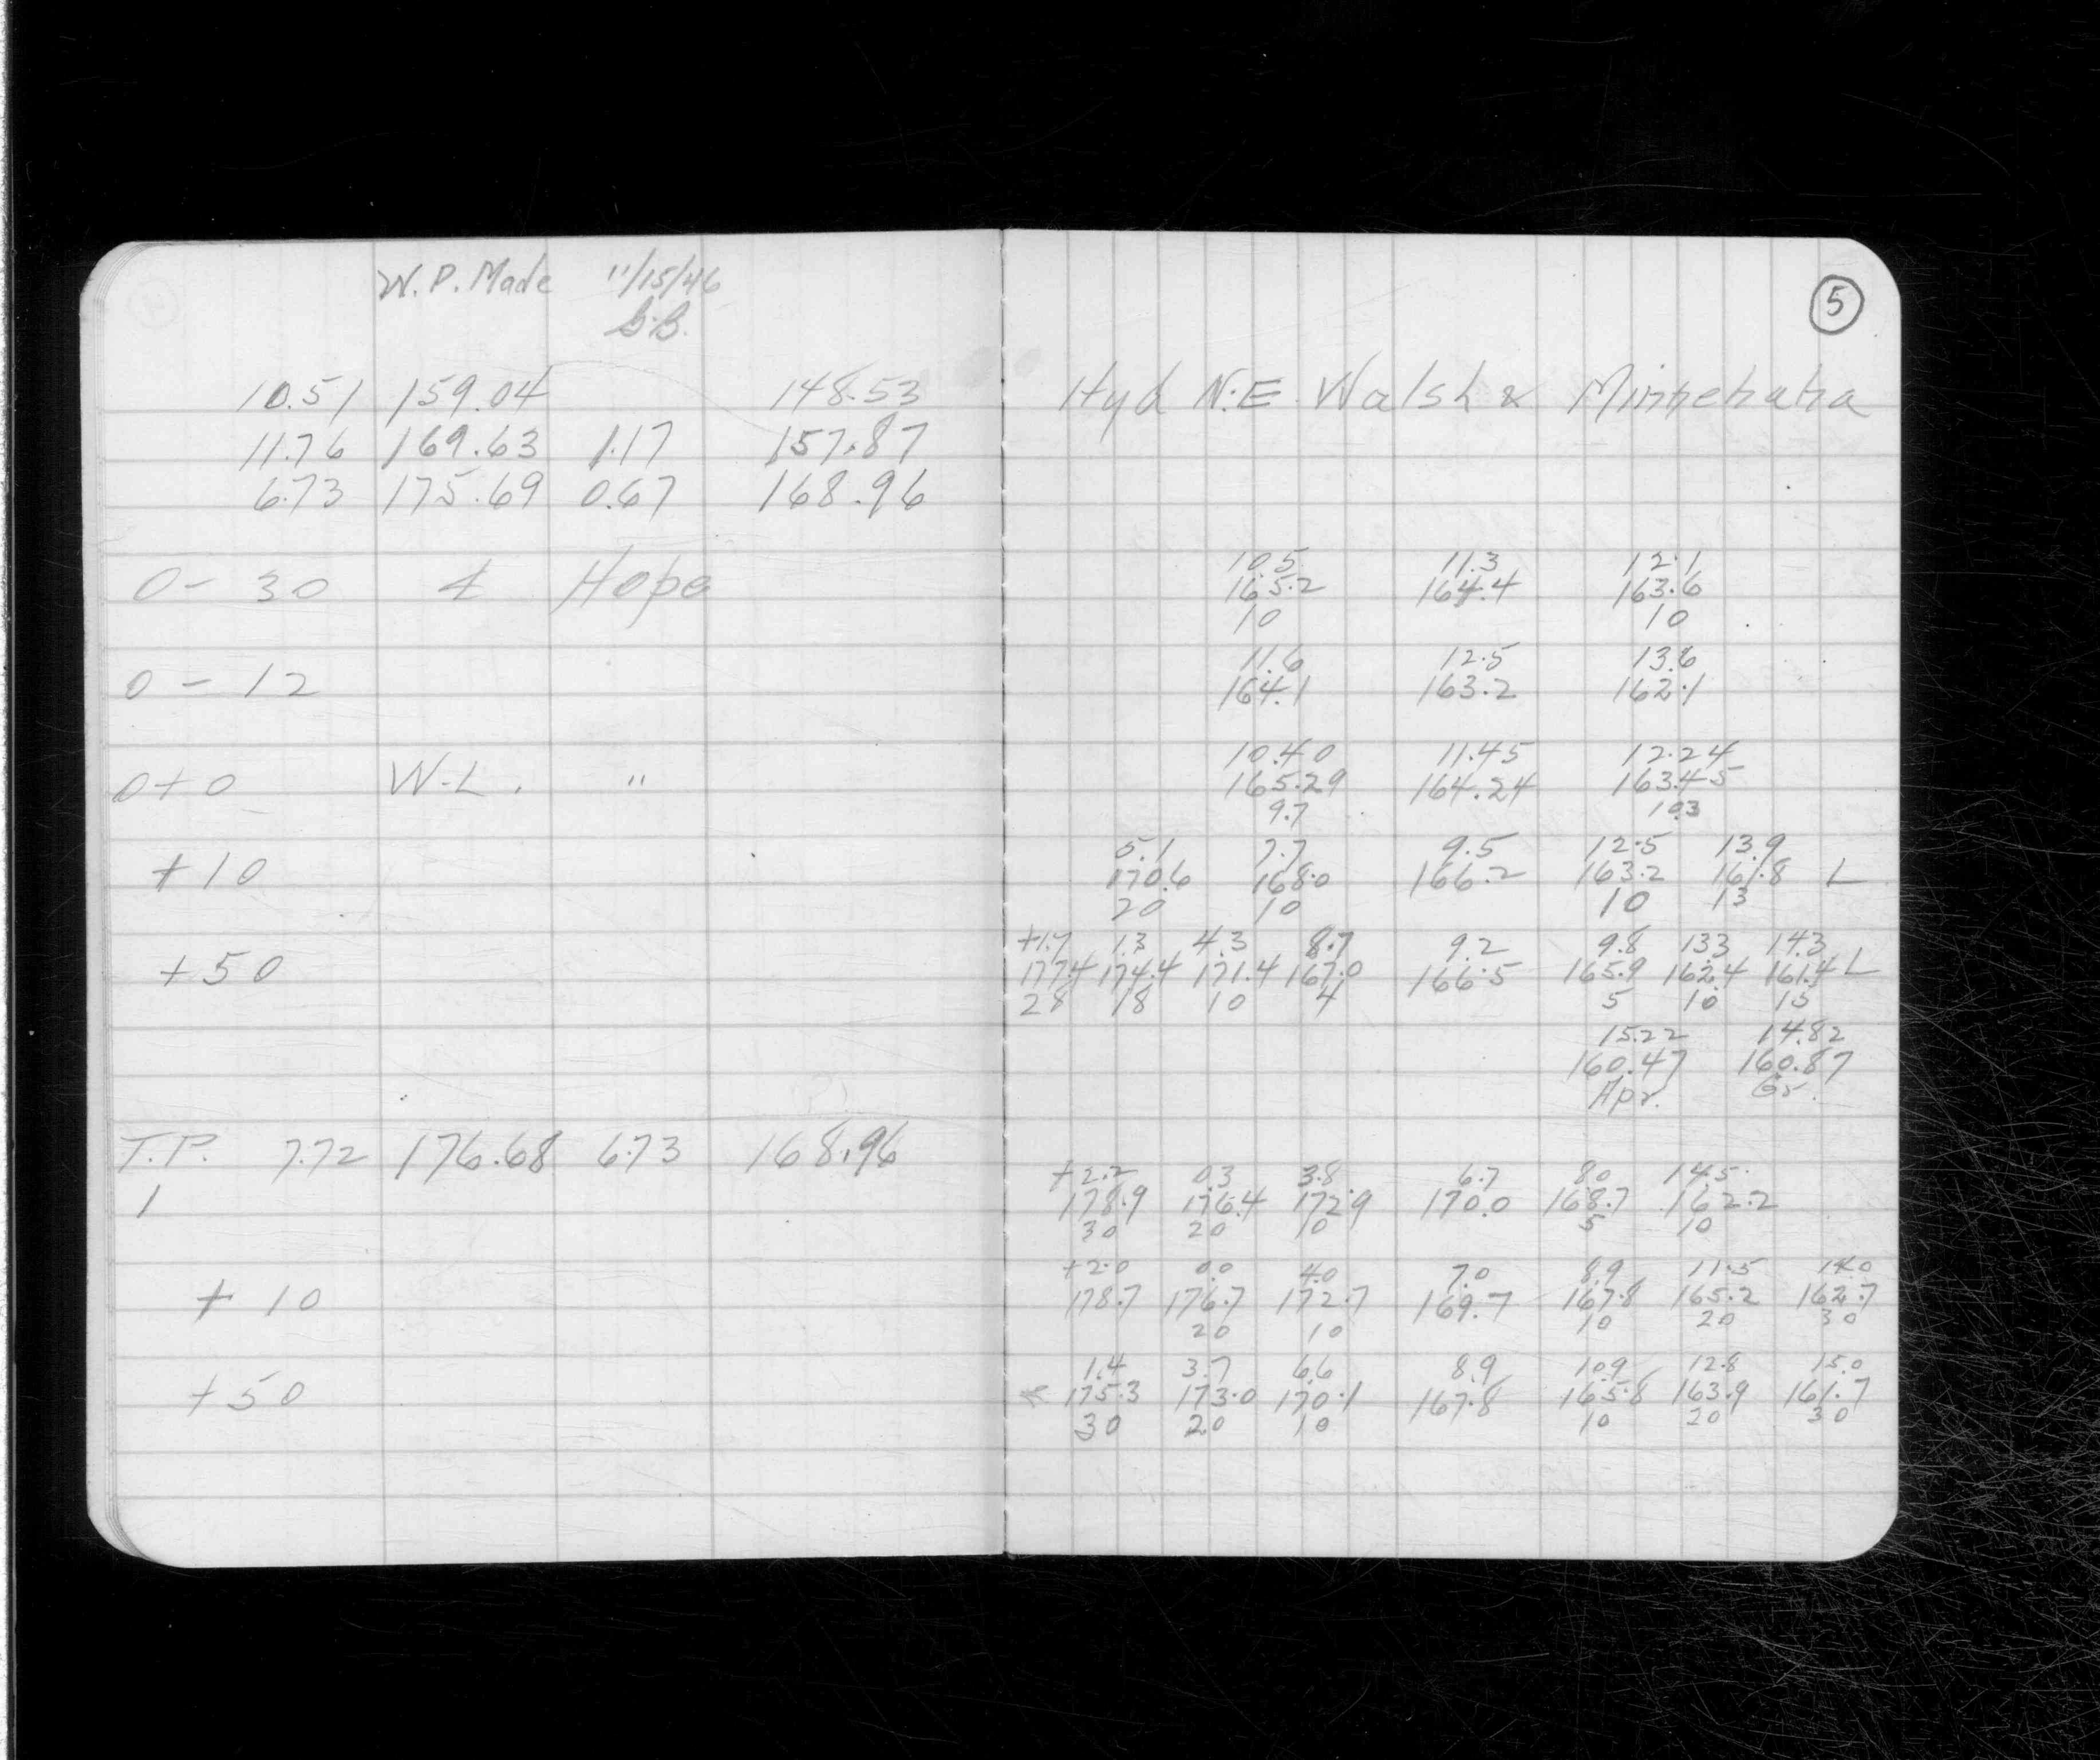 W.P. Made 11/15/46
G.B.
5
10.51 159.04 148.53 Hyd N.E. Walsh & Minnehaha
11.76 169.63 1.17 157.87
6.73 175.69 0.67 168.96
10.5 11.3 12.1
0 - 30 Hope 165.2 164.4 163.6
10 10
11.6 12.5 13.6
0 - 12 164.1 163.2 162.1
10.40 11.45 12.24
0+0 W.L. " 165.29 164.24 163.45
9.7 10.3
5.1 7.7 9.5 12.5 13.9
+10 170.6 168.0 166.2 163.2 161.8 L
20 10 10 13
+1.7 1.3 4.3 8.7 9.2 9.8 13.3 14.3
+50 177.4 174.4 171.4 167.0 166.5 165.9 162.4 161.4 L
28 18 10 4 5 10 15
15.22 14.82
160.47 160.87
Apr. Gr.
T.P. 7.72 176.68 6.73 168.96
+2.2 0.3 3.8 6.7 8.0 14.5
1 178.9 176.4 172.9 170.0 168.7 162.2
30 20 10 5 10
+2.0 0.0 4.0 7.0 8.9 11.5 14.0
+ 10 178.7 176.7 172.7 169.7 167.8 165.2 162.7
20 10 10 20 30
1.4 3.7 6.6 8.9 10.9 12.8 15.0
+50 175.3 173.0 170.1 167.8 165.8 163.9 161.7
30 20 10 10 20 30